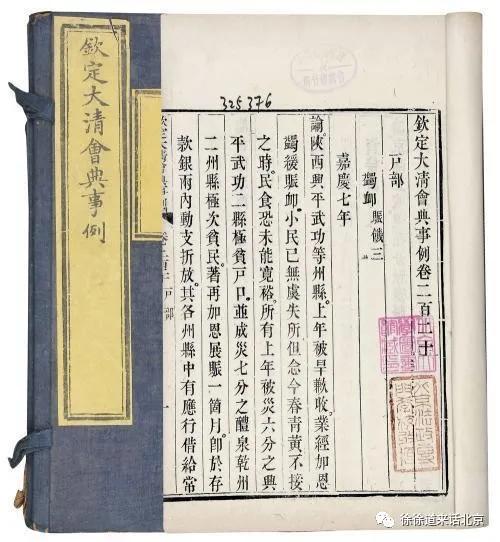 欽定大清會典事例
325376
欽定大清會典事例卷二百
戶部
蠲卹 賑饑三
嘉慶七年
諭陝西興平武功等州縣。上年被旱歉收。業經加恩
蠲緩賑卹。小民已無虞失所。但念今春青黃不接
之時。民食恐未能寬裕。所有上年被災六分之興
平武功二縣極貧戶口。並成災七分之醴泉乾州
二州縣極次貧民。著再加恩展賑一箇月。卽於存
款銀兩內動支折放。其各州縣中有應行借給常
欽定大清會典事例
戶部
一
徐徐道来话北京